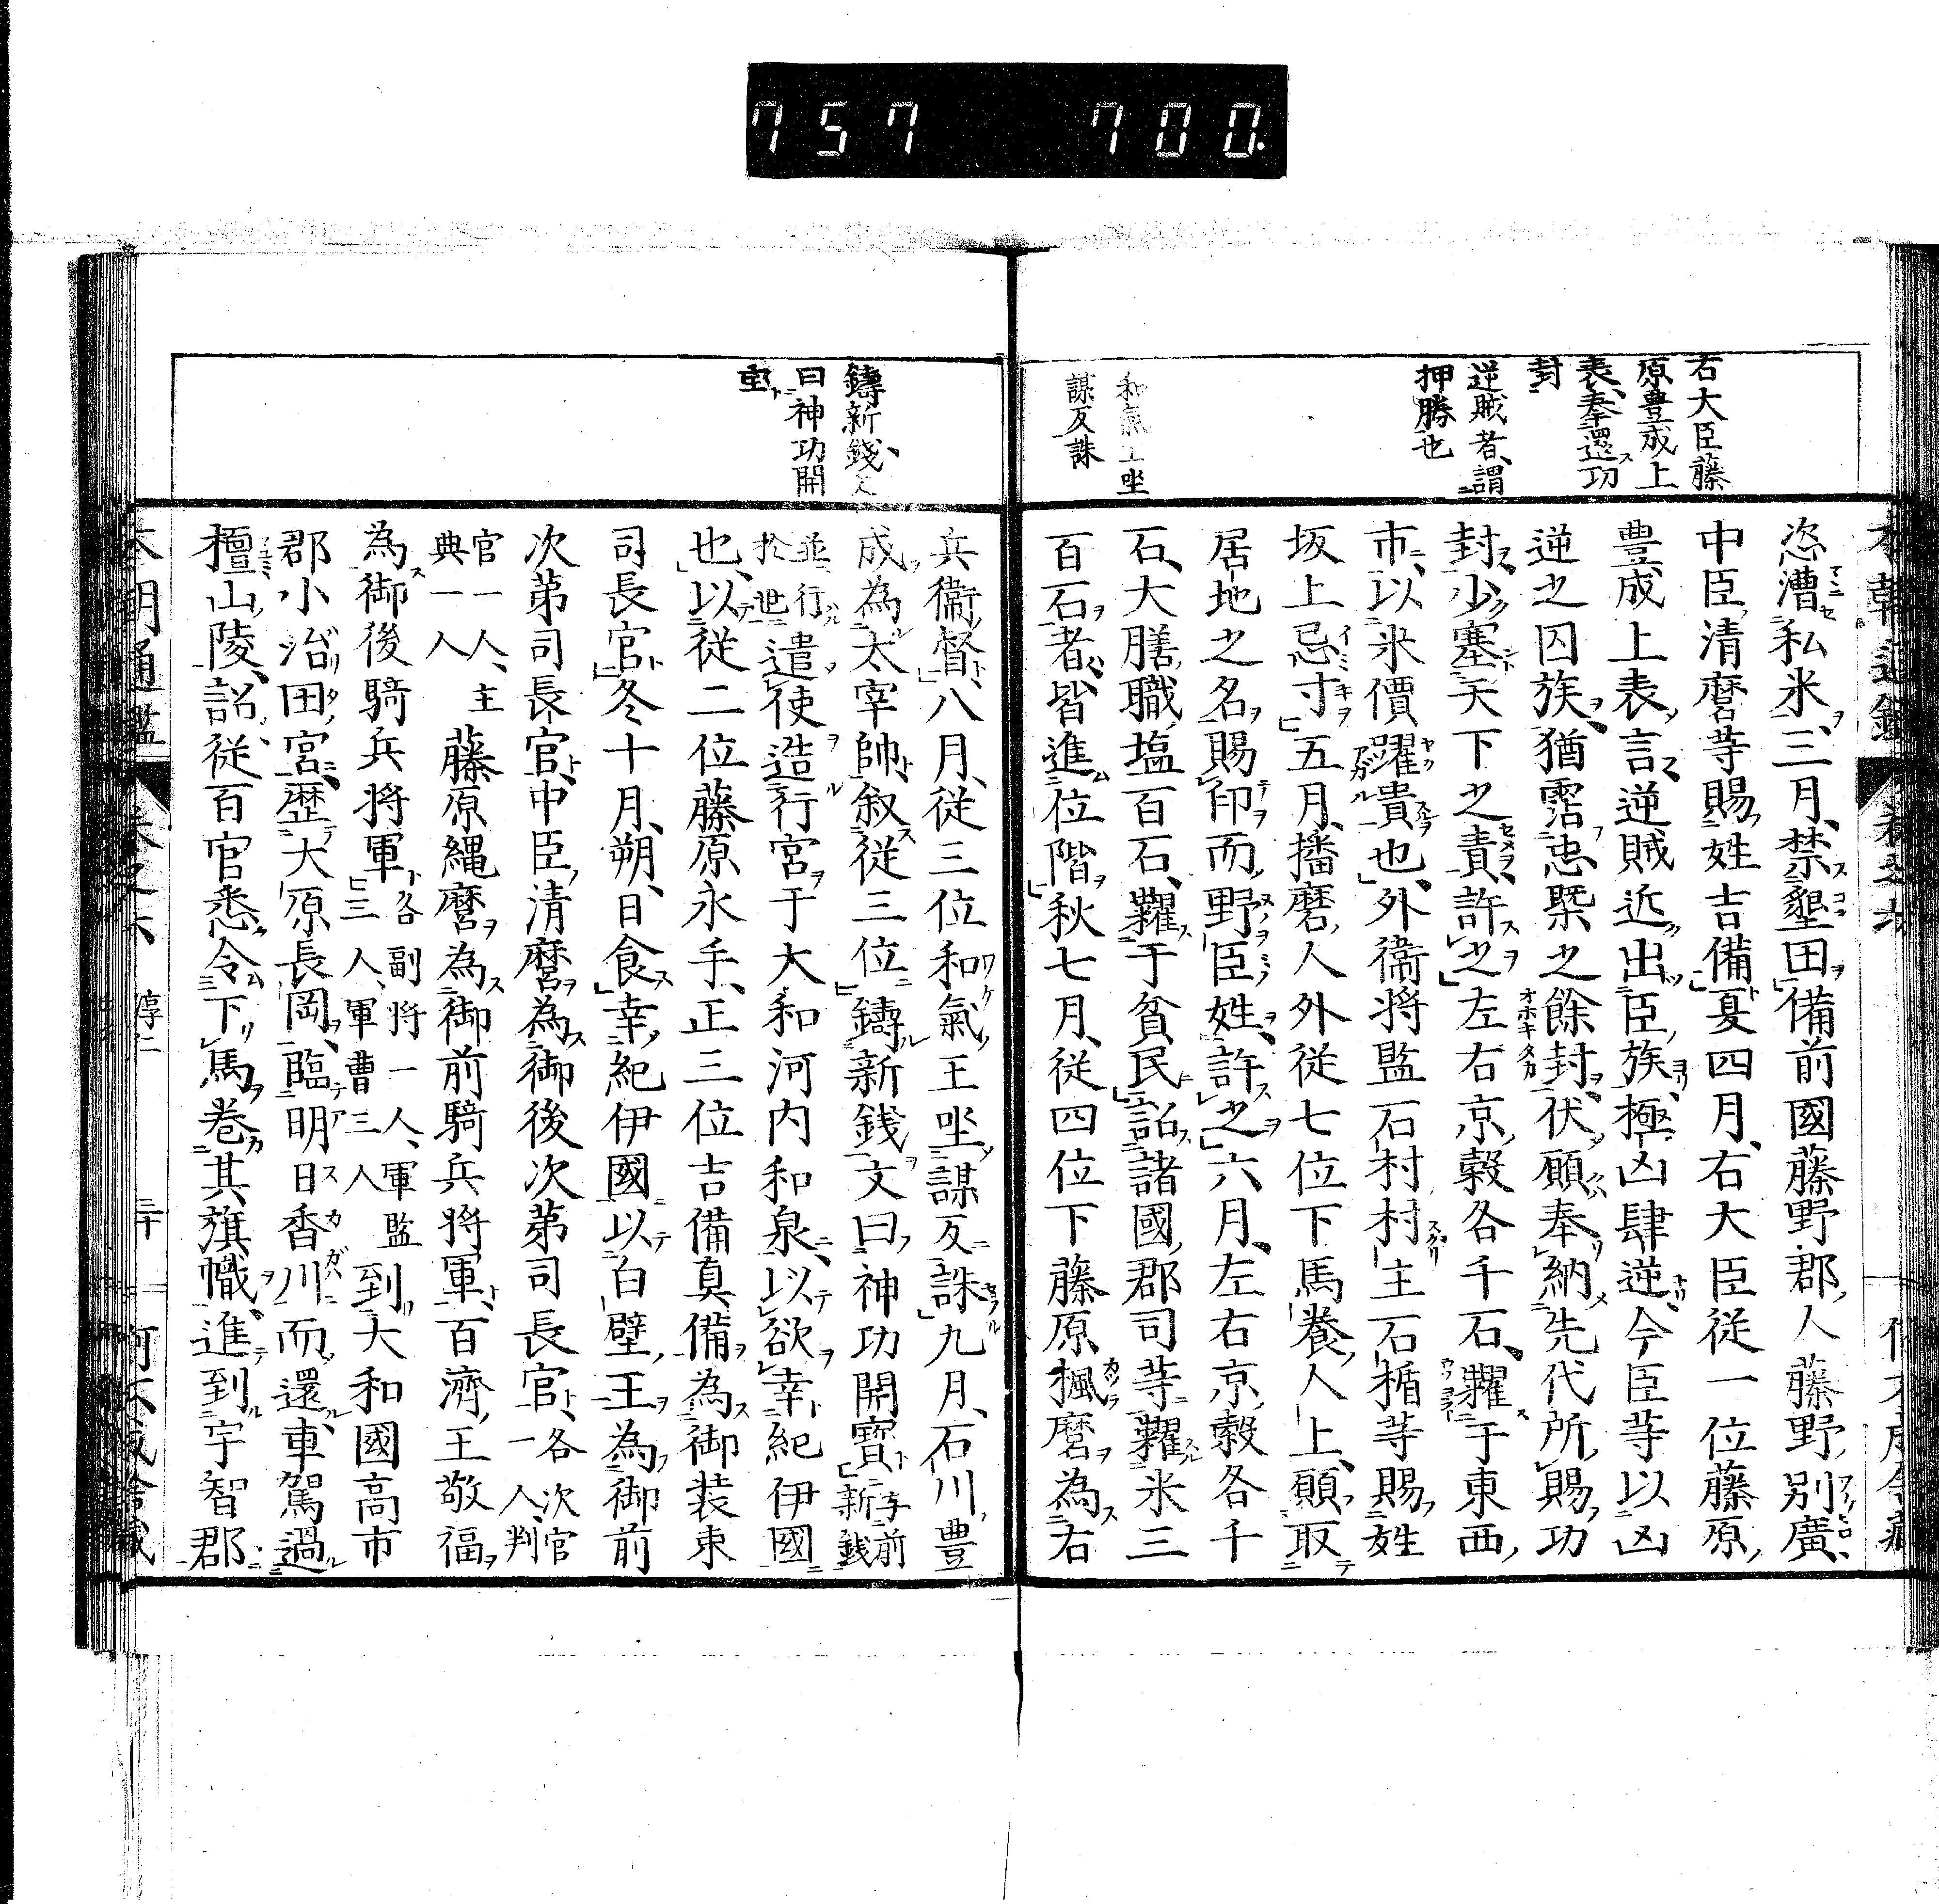 757 700.
右大臣藤
原豊成上
表奉還功
封
逆賊者謂
押勝也
和氣王坐
謀反誅
恣漕私米三月禁墾田備前國藤野郡人藤野別廣
中臣清麿等賜姓吉備夏四月右大臣従一位藤原
豊成上表言逆賊近出臣族極凶肆逆今臣等以凶
逆之囚族猶霑忠槩之餘封伏願奉納先代所賜功
封少塞天下之責許之左右京穀各千石糶于東西
市以米價躍貴也外衞将監石村村主石楯等賜姓
坂上忌寸五月播磨人外従七位下馬養人上願取
居地之名賜印而野臣姓許之六月左右京穀各千
石大膳職塩百石糶于貧民詔諸國郡司等糶米三
百石者皆進位階秋七月従四位下藤原楓麿為右
鑄新錢文
曰神功開
宝
兵衞督八月従三位和氣王坐謀反誅九月石川豊
成為太宰帥叙従三位鑄新銭文曰神功開寳新銭与前
並行於世遣使造行宮于大和河内和泉以欲幸紀伊國
也以従二位藤原永手正三位吉備真備為御装束
司長官冬十月朔日食幸紀伊國以白壁王為御前
次第司長官中臣清麿為御後次第司長官各次官一人判
官一人主典一人藤原縄麿為御前騎兵将軍百濟王敬福
為御後騎兵将軍各副将一人軍監三人軍曹三人到大和國高市
郡小治田宮歴大原長岡臨明日香川而還車駕過
檀山陵詔従百官悉令下馬巻其旗幟進到宇智郡
本朝通鑑 巻之六 淳仁 三十